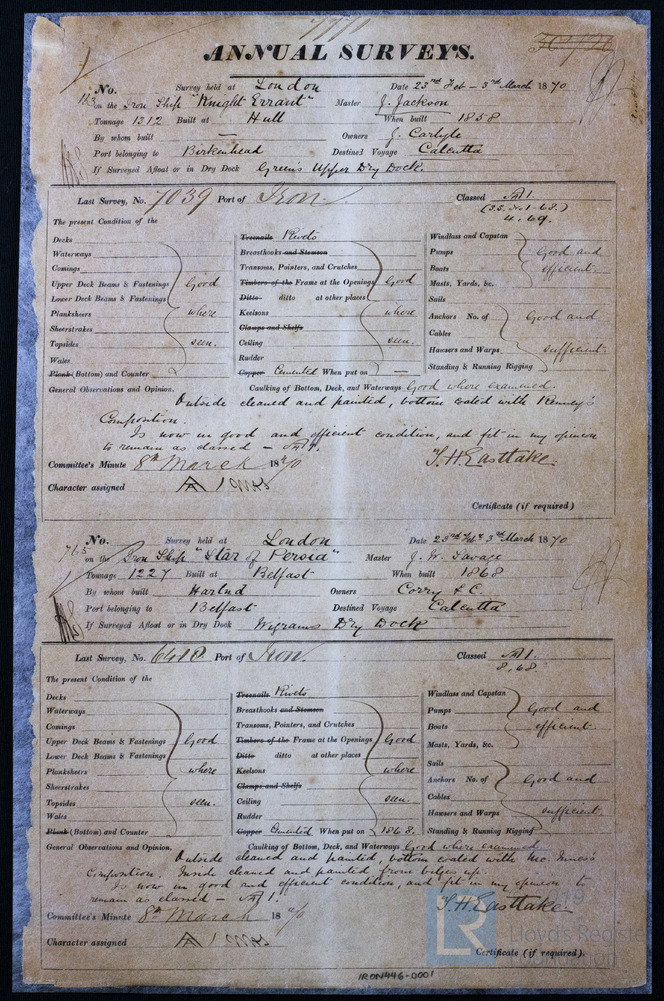 ANNUAL SURVEYS.
No. Survey held at London Date 23rd Feb - 3rd March 1870
on the Iron Ship "Knight Errant" Master J. Jackson
Tonnage 1312 Built at Hull When built 1858
By whom built — Owners J. Carlyle
Port belonging to Birkenhead Destined Voyage Calcutta
If Surveyed Afloat or in Dry Dock Green's Upper Dry Dock.
Last Survey, No. 7039 Port of Iron. Classed A1.
(S.S. No. 1-68.)
4.69.
The present Condition of the
Decks
Waterways
Comings
Upper Deck Beams & Fastenings
Lower Deck Beams & Fastenings
Planksheers
Sheerstrakes
Topsides
Wales
Plank (Bottom) and Counter
Good
where
seen.
Treenails Rivets
Breasthooks and Stemson
Transoms, Pointers, and Crutches
Timbers of the Frame at the Openings
Ditto ditto at other places
Keelsons
Clamps and Shelfs
Ceiling
Rudder
Copper Cemented When put on —
Good
where
seen.
Windlass and Capstan
Pumps
Boats
Masts, Yards, &c.
Good and
efficient.
Sails
Anchors No. of
Cables
Hawsers and Warps
Standing & Running Rigging
Good and
sufficient.
General Observations and Opinion. Caulking of Bottom, Deck, and Waterways Good where examined.
Outside cleaned and painted, bottom coated with Kenney's
Composition.
Is now in good and efficient condition, and fit in my opinion
to remain as classed – A1.
T.H. Eastlake.
Committee's Minute 8th March 1870
Character assigned A 1
Certificate (if required)
No. Survey held at London Date 23rd Feb & 3rd March 1870
765 on the Iron Ship "Star of Persia" Master J. W. Savage
Tonnage 1227 Built at Belfast When built 1868
By whom built Harland Owners Corry & C.
Port belonging to Belfast Destined Voyage Calcutta
If Surveyed Afloat or in Dry Dock Wigrams Dry Dock
Last Survey, No. 6410 Port of Iron. Classed A1.
8.68
The present Condition of the
Decks
Waterways
Comings
Upper Deck Beams & Fastenings
Lower Deck Beams & Fastenings
Planksheers
Sheerstrakes
Topsides
Wales
Plank (Bottom) and Counter
Good
where
seen.
Treenails Rivets
Breasthooks and Stemson
Transoms, Pointers, and Crutches
Timbers of the Frame at the Openings
Ditto ditto at other places
Keelsons
Clamps and Shelfs
Ceiling
Rudder
Copper Cemented When put on 1868.
Good
where
seen.
Windlass and Capstan
Pumps
Boats
Masts, Yards, &c.
Good and
efficient.
Sails
Anchors No. of
Cables
Hawsers and Warps
Standing & Running Rigging
Good and
sufficient.
General Observations and Opinion. Caulking of Bottom, Deck, and Waterways Good where examined
Outside cleaned and painted, bottom coated with Mc. Inness's
Composition. Inside cleaned and painted from bilges up.
Is now in good and efficient condition, and fit in my opinion to
remain as classed – A1.
T.H. Eastlake.
Committee's Minute 8th March 1870
Character assigned A 1
Certificate (if required).
LR
Lloyd's Register
Foundation
IRON446-0001